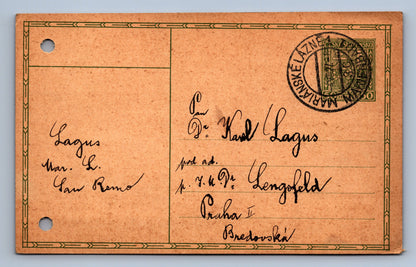 MARIÁNSKÉ LÁZNĚ 1
MARIENBAD 1
Pan
Dr. Karel Lagus
post ad.
p. J. U. Dr. Lengsfeld
Praha II
Bredovská
Lagus
Mar. L.
San Remo